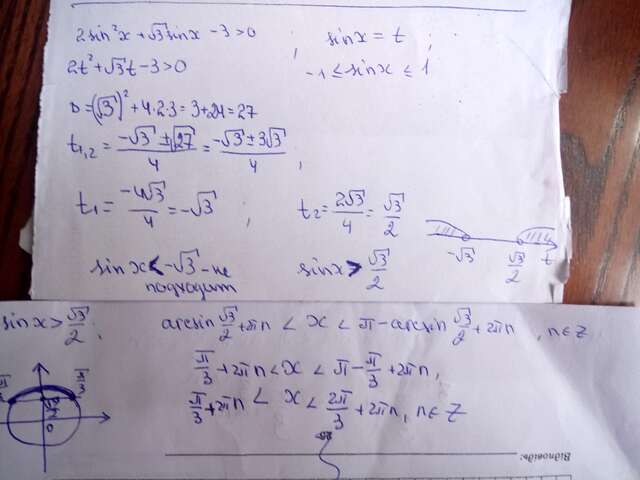 2sin²x + √3 sinx - 3 > 0 , sinx = t ;
2t² + √3t - 3 > 0 -1 ≤ sinx ≤ 1
D = (√3)² + 4·2·3 = 3 + 24 = 27
t₁,₂ = (-√3 ± √27)/4 = (-√3 ± 3√3)/4 ,
t₁ = -4√3/4 = -√3 , t₂ = 2√3/4 = √3/2
-√3 √3/2 t
sinx < -√3 - не sinx > √3/2
sinx > √3/2 ; arcsin √3/2 + 2πn < x < π - arcsin √3/2 + 2πn , n ∈ Z
π/3 + 2πn < x < π - π/3 + 2πn ,
π/3 + 2πn < x < 2π/3 + 2πn , n ∈ Z
0
π/3
Відповідь: